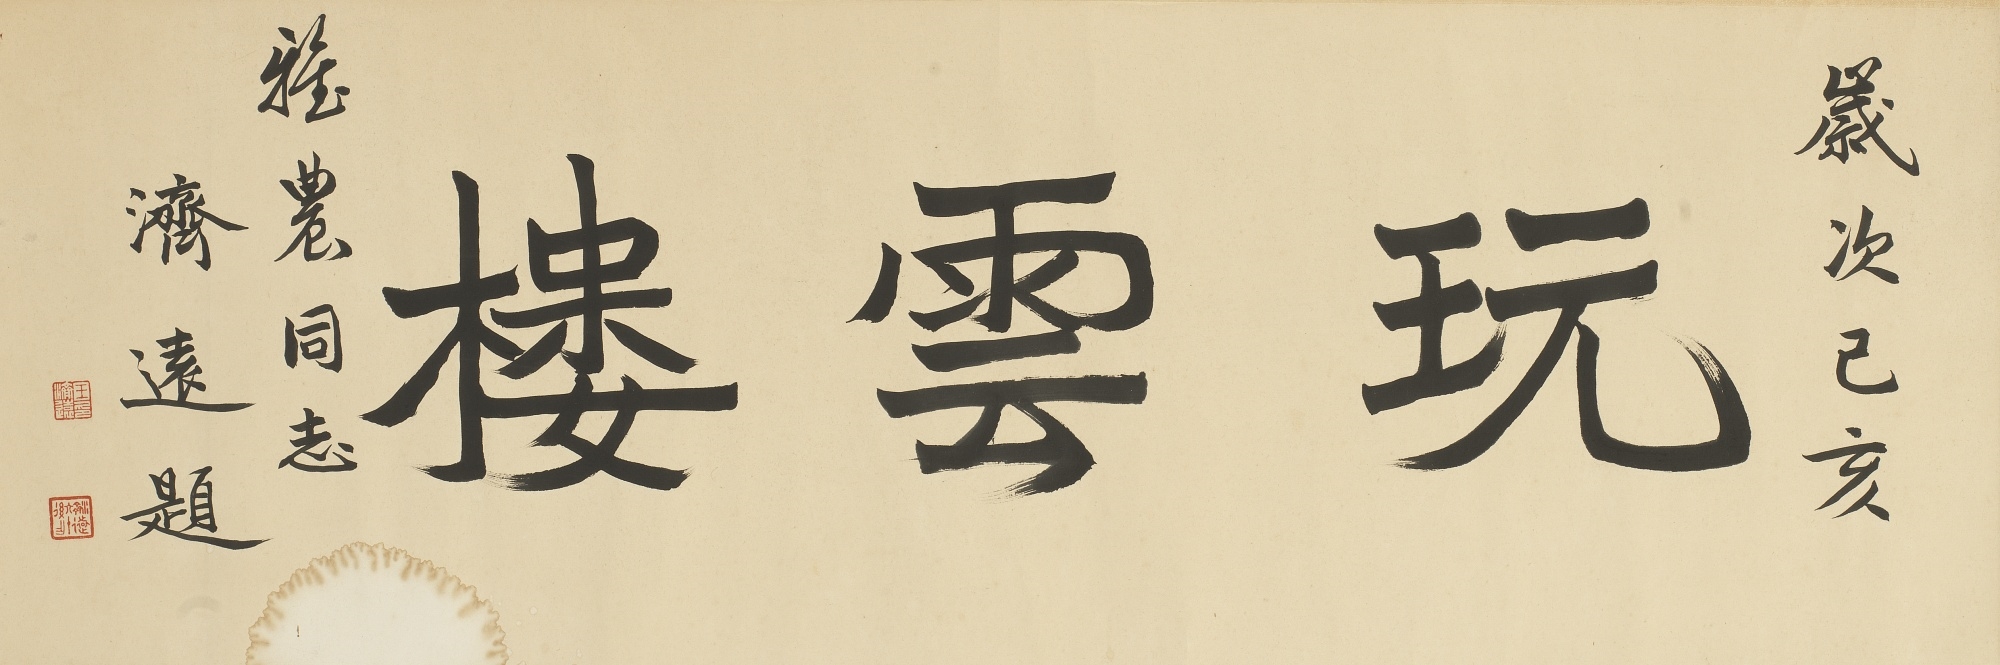 歲次己亥
玩雲樓
雅農同志
濟遠題